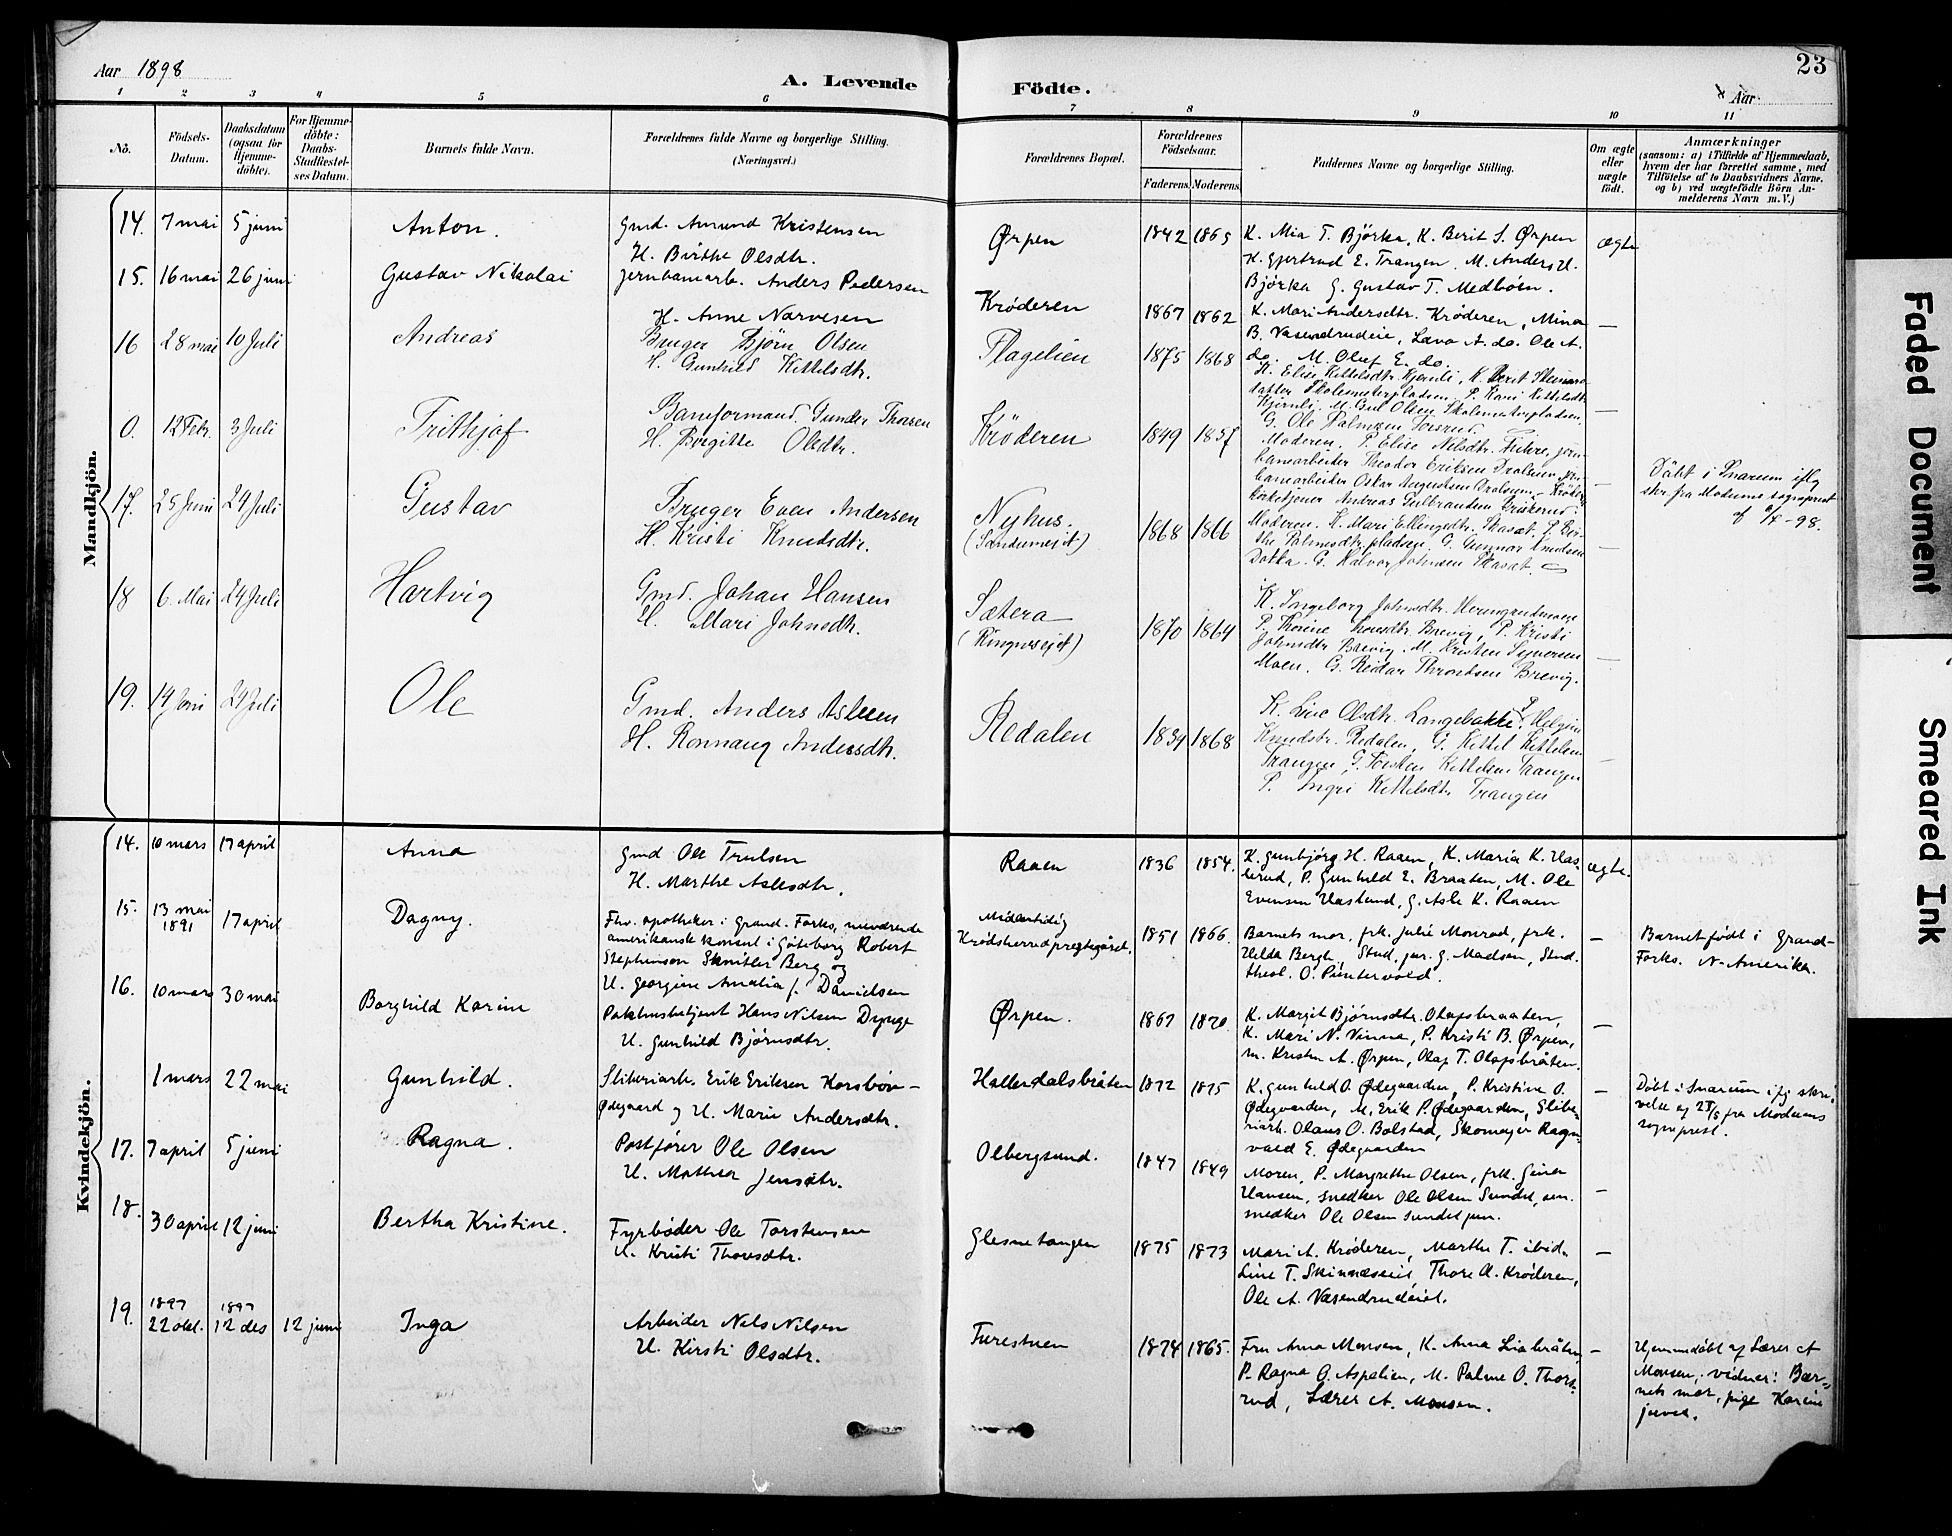 Aar 1898
A. Levende
Födte.
Aar
23
1 2 3 4 5 6 7 8 9 10 11
No.
Födsels-Datum.
Daabsdatum (ogsaa for Hjemme-döbte).
For Hjemme-döbte: Daabs-Stadfæstel-ses Datum.
Barnets fulde Navn.
Forældrenes fulde Navne og borgerlige Stilling.
(Næringsvei.)
Forældrenes Bopæl.
Forældrenes Födselsaar.
Faderens.
Moderens.
Faddernes Navne og borgerlige Stilling.
Om ægte eller uægte födt.
Anmærkninger
(saasom: a) i Tilfælde af Hjemmedaab,
hvem der har forrettet samme, med
Tilföielse af to Daabsvidners Navne.
og b) ved uægtefödte Börn An-
melderens Navn m.V.)
Mandkjön.
14. 7 mai 5 juni Anton. Gmd. Amund Kristensen
H. Birthe Olsdtr.
Ørpen 1842 1865 K. Mia T. Bjørka, K. Berit S. Ørpen ægte
K. Gjertrud E. Trangen. M. Anders U.
Bjørka G. Gustav T. Medboen.
15. 16 mai 26 juni Gustav Nikolai Jernbanearb. Anders Pedersen
H. Anne Narvesen
Krøderen 1867 1862 K. Mari Andersdtr. Krøderen, Mina —
B. Vasendrudeie, Lava A. do. Ole A.
do. M. Oluf E. do.
16 28 mai 10 Juli Andreas Bruger Bjørn Olsen
H. Gunhild Kittelsdtr.
Flagelien 1875 1868 K. Elise Kittelsdtr. Kjernli, K. Berit Steinars-
datter Skolemesterpladsen, P. Kari Kittelsdtr.
Kjernli. M. Olsen Skolemesterpladsen. —
G. Ole Palmesen
0. 12 Febr. 3 Juli Frithjof Baneformand Gunder Thoresen
H. Birgitte Olsdtr.
Krøderen 1849 1857 Moderen. P. Elise Nilsdtr. jern-
banearbeider Theodor Eriksen Dralsum, jern-
banearbeider Oskar Augustsen Dralsum, —
Kirketjener Andreas Gulbrandsen
Döbt i Snarum iflg
skr. fra Modums sogneprest
af -98.
17. 25 Juni 24 Juli Gustav Bruger Even Andersen
H. Kristi Knudsdtr.
Nyhus.
(Sandumsejet)
1868 1866 Moderen. K. Mari Ellingsdtr. Skasæt. P. Bir-
the Palmesdtr. pladsen. G. Gunnar Knudsen —
Dokka. G. Halvor Johnsen Skasæt.
18 6. Mai 24 Juli Hartvig Gmd. Johan Hansen
H. Mari Johnsdtr.
Sætera
(Ringnesejet)
1870 1864 K. Ingeborg Johnsdtr.
P. Thorine Thoresdtr. Brevig, P. Kristi
Johnsdtr Brevig. M. Kristen Syversen
Moen. G. Reidar Throndsen Brevig. —
19. 14 Juni 24 Juli Ole Gmd. Anders Aslesen
H. Rønnaug Andersdtr.
Redalen 1834 1868 K. Line Olsdtr. Langebakke. P. Helga
Knudsdtr. Redalen, G. Kittel Kittelsen
Trangen, G. Torsten Kittelsen Trangen —
P. Ingri Kittelsdtr Trangen
Kvindekjön.
14. 10 mars 17 april Anna Gmd Ole Trulsen
H. Marthe Aslesdtr.
Raaen 1836 1854. K. Gunbjørg H. Raaen, K. Maria K. Has- ægte.
lerud, P. Gunhild E. Braaten, M. Ole
Evensen Haslund, G. Asle K. Raaen
15. 13 mai 1891 17 april Dagny. Fhv. apotheker i Grand. Forks, nuværende
amerikansk konsul i Göteborg Robert
Stephenson Schnitler Berg og
H. Georgine Amalia f. Danielsen
Midlertidig
Krødsherred prestegård.
1851 1866. Barnets mor, frk. Julie Monrad, frk. —
Helda Bergh, Stud. jur. G. Madsen, Stud.
theol. O. Pintervold.
Barnet født i Grand-
Forks. N-Amerika.
16. 10 mars 30 mai Borghild Karine Pakhusbetjent Hans Nilsen Dynge
H. Gunhild Bjørnsdtr.
Ørpen. 1867 1870. K. Margit Bjørnsdtr. Olafsbraaten,
K. Mari N. Vinna, P. Kristi B. Ørpen, —
M. Kristen A. Ørpen, Olaf T. Olafsbråten.
1 mars 22 mai Gunhild. Sliberiarb. Erik Eriksen Korsbøn-
Ødegaard og H. Marie Andersdtr.
Hallerdalsbråten 1872 1875 K. Gunhild O. Ødegaarden, P. Kristine O. —
Ødegaarden, M. Erik P. Ødegaarden, Slibe-
riarb. Olaus O. Bolstad, Skomager Ragn-
vald E. Ødegaarden
Døbt i Snarum ifg skri-
velse af fra Modums
sogneprest.
17. 7 april 5 juni Ragna. Postfører Ole Olsen
H. Mathea Jensdtr.
Olbergsund. 1847 1849 Moren, P. Margrethe Olsen, frk. Gina
Hansen, snedker Ole Olsen Sundet, sen. —
snedker Ole Olsen Sundet jun.
18. 30 april 12 juni Bertha Kristine. Fyrbøder Ole Torstensen
H. Kristi Thoresdtr.
Glesnetangen 1875 1873 Mari A. Krøderen, Marthe T. ibid. —
Line T. Skinnæseiet, Thore A. Krøderen,
Ole A. Væsendrudeiet.
19. 1897 22 okt. 1897 12 des 12 juni Inga Arbeider Nels Nilsen
H. Kirsti Olsdtr.
Turestuen 1874 1865. Fru Anna Monsen, K. Anna Liabråten, —
P. Ragna O. Aspelien, M. Palme O. Thors-
rud, Lærer A. Monsen.
Hjemmedøbt af Lærer A
Monsen, vidner: Bar-
nets mor, pige Karine
Juvet.
Faded Document
Smeared Ink